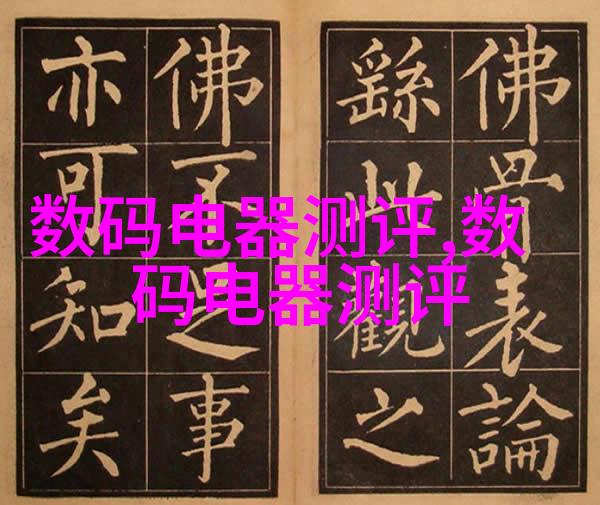 数码电器测评,数
码电器测评
佛骨表論
繇此觀之
佛不足事
亦可知矣